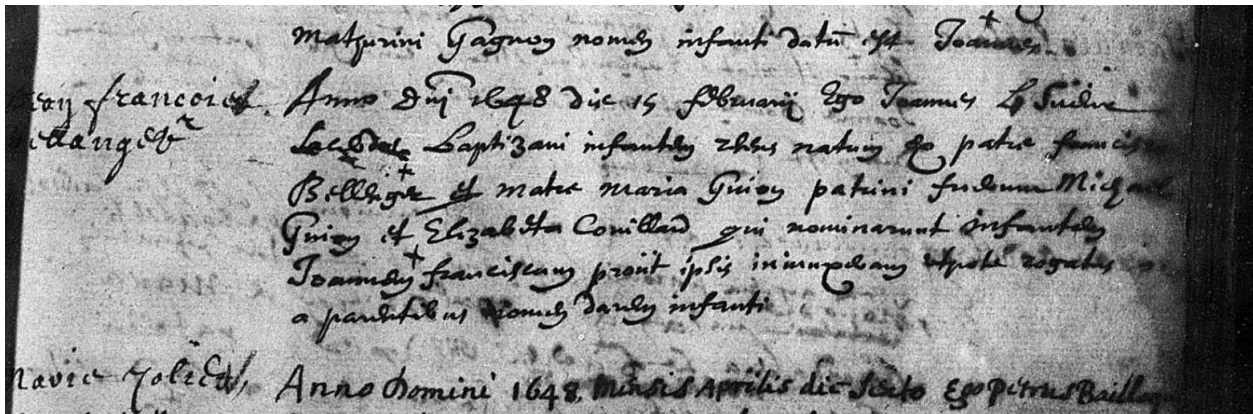 Mathurini Gagnon nomen infanti datū est Joannes.
Jean francois
Bellanger
Anno Dni 1648 die 15 februarii Ego Joannes Le Sueur
Sacerdos baptizavi infantem natum ex patre francisco
Bellenger et matre maria Guion patrini fuerunt Michael
Guion et Elizabeta Couillard qui nominarunt infantem
Joannem franciscum prout ipsis iniunxeram utpote rogatus
a parentibus nomen darem infanti
marie Anno Domini 1648. Mensis Aprilis die Sexto Ego Petrus Baillo